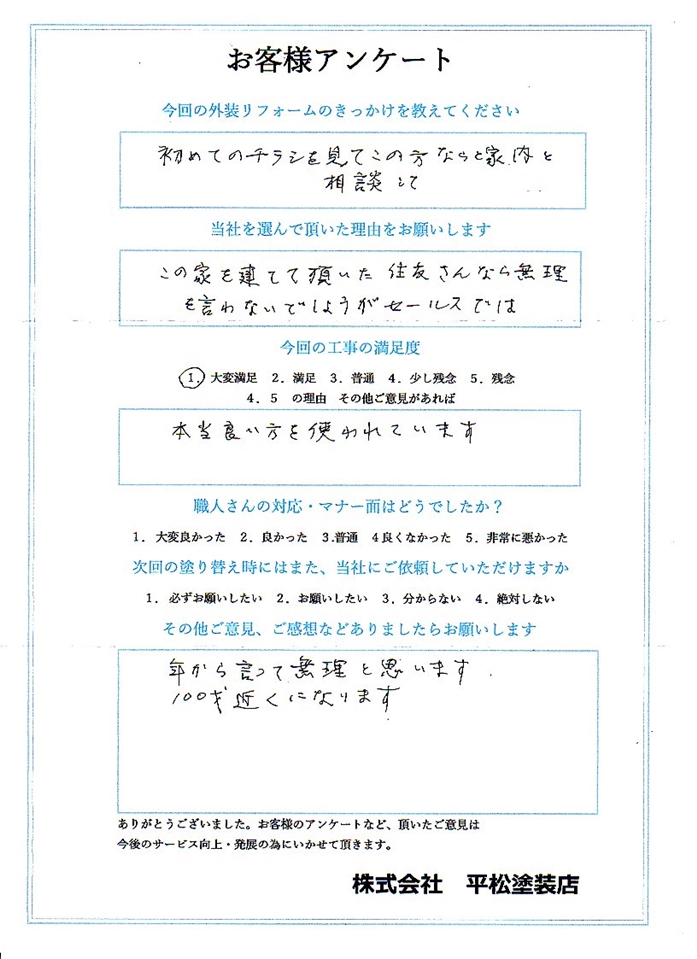 お客様アンケート
今回の外装リフォームのきっかけを教えてください
初めてのチラシを見てこの方ならと家内と
相談して
当社を選んで頂いた理由をお願いします
この家を建てて頂いた住友さんなら無理
を言わないでしようがセールスでは
今回の工事の満足度
1. 大変満足 2. 満足 3. 普通 4. 少し残念 5. 残念
4. 5 の理由 その他ご意見があれば
本当良い方を使われています
職人さんの対応・マナー面はどうでしたか？
1. 大変良かった 2. 良かった 3.普通 4良くなかった 5. 非常に悪かった
次回の塗り替え時にはまた、当社にご依頼していただけますか
1. 必ずお願いしたい 2. お願いしたい 3. 分からない 4. 絶対しない
その他ご意見、ご感想などありましたらお願いします
年から言って無理と思います.
100才近くになります
ありがとうございました。お客様のアンケートなど、頂いたご意見は
今後のサービス向上・発展の為にいかせて頂きます。
株式会社 平松塗装店